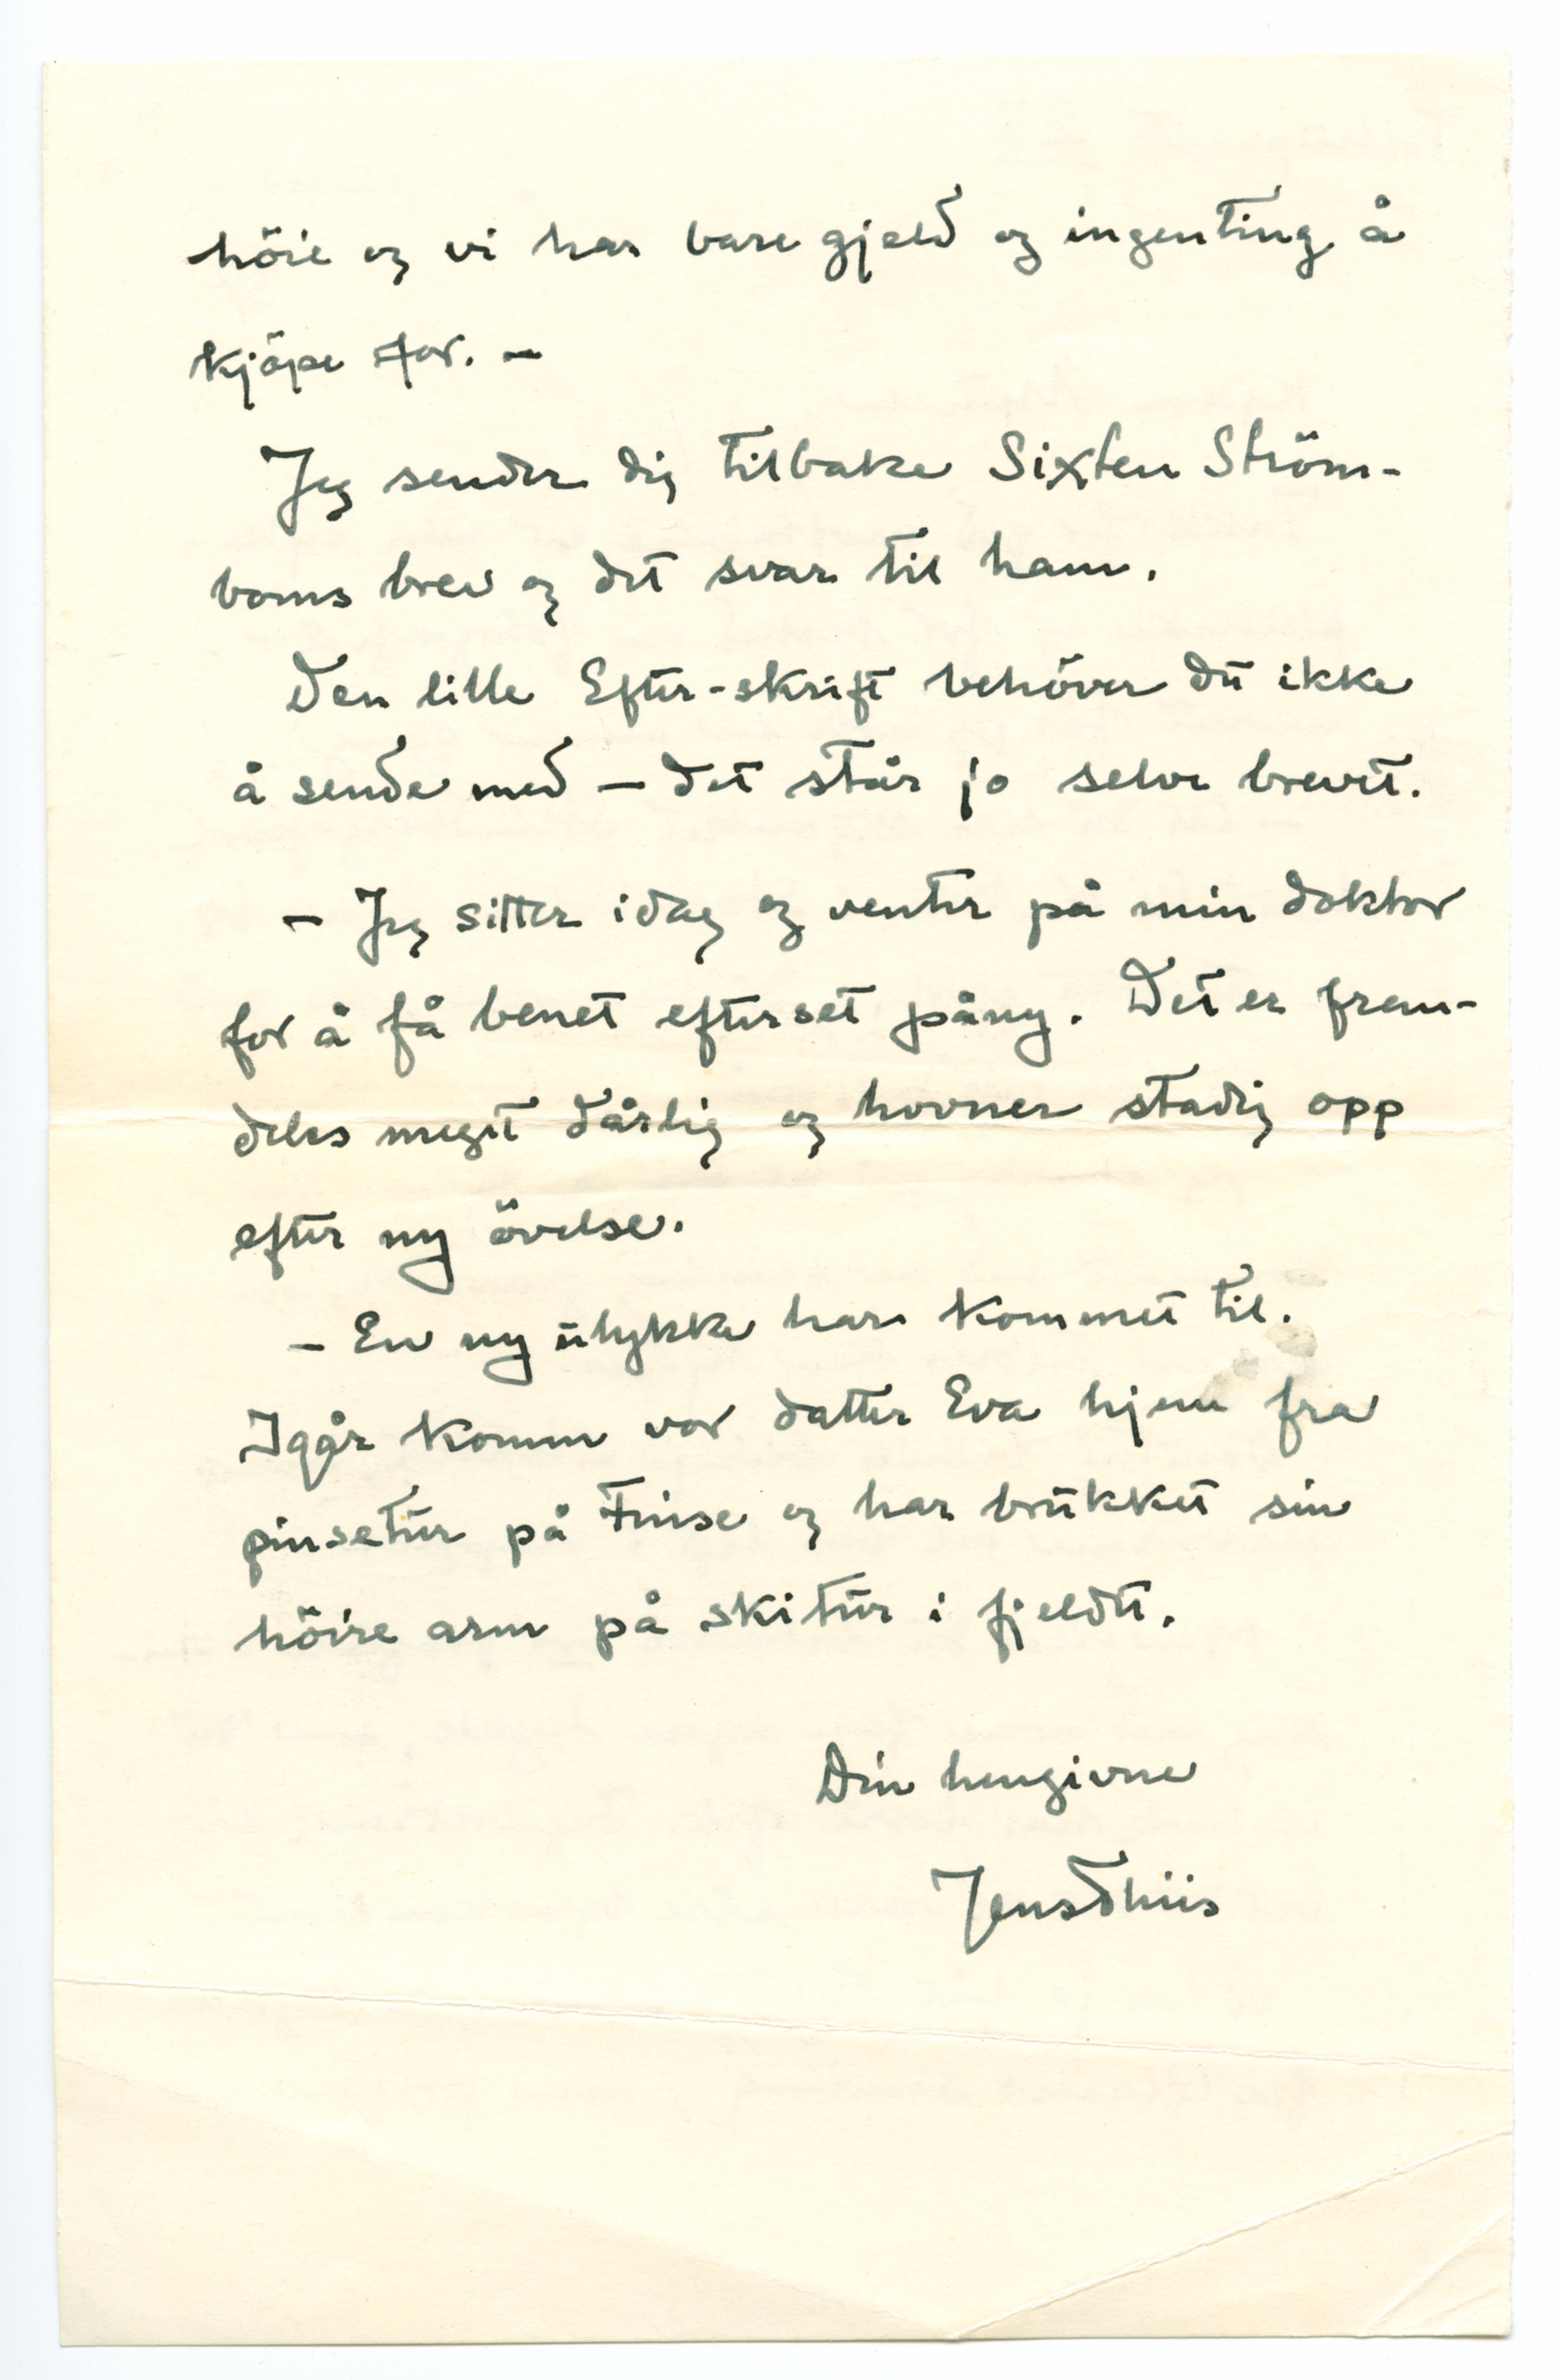 höie og vi har bare gjæld og ingenting å
kjöpe for. –
Jeg sender dig tilbake Sixten Ström-
boms brev og det svar til ham.
Den lille Efter-skrift behöver du ikke
å sende med – det står jo selve brevet.
– Jeg sitter idag og venter på min doktor
for å få benet efterset påny. Det er frem-
deles meget dårlig og hovner stadig opp
efter ny övelse.
– En ny ulykke har kommet til.
Igår komm vor datter Eva hjem fra
pinsetur på Finse og har brukket sin
höire arm på skitur i fjeldet.
Din hengivne
Jens Thiis